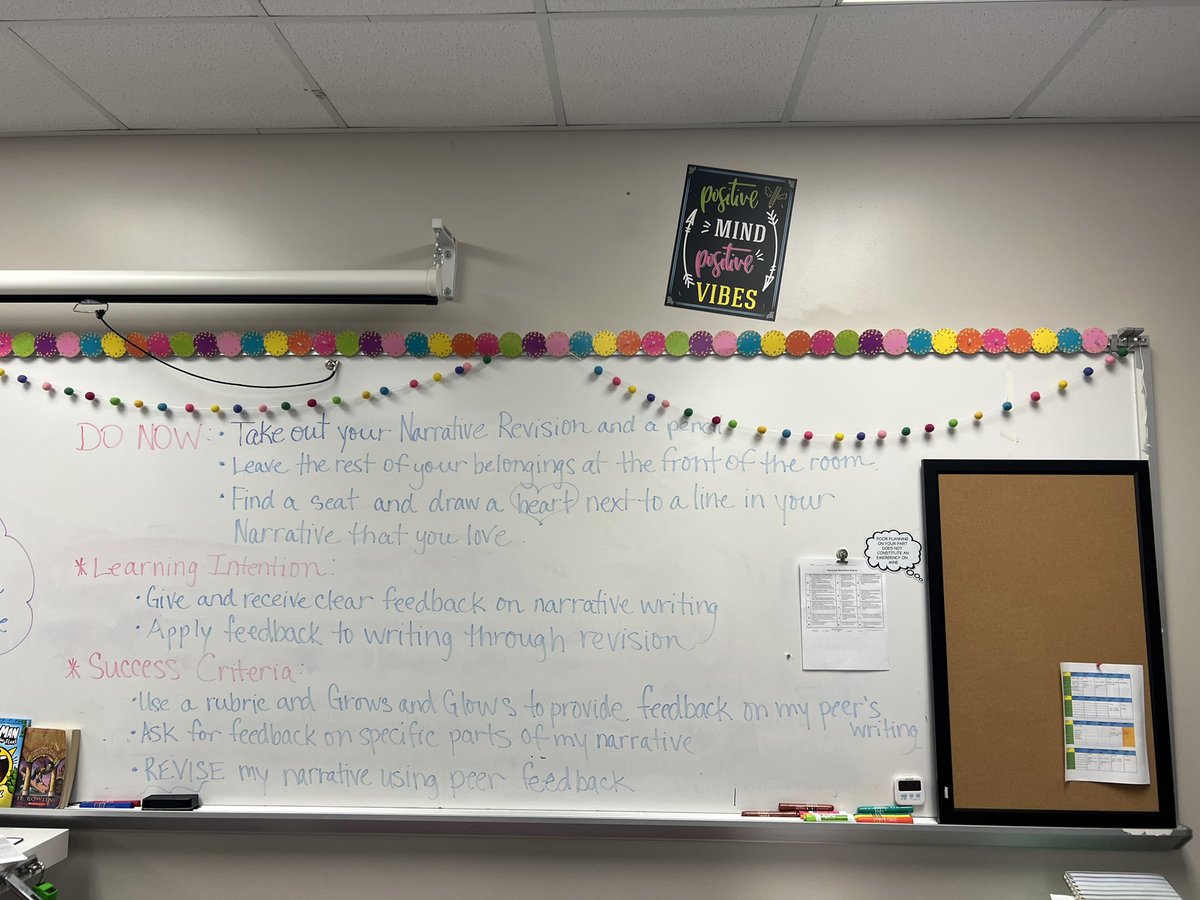 positive
MIND
positive
VIBES
DO NOW: • Take out your Narrative Revision and a pencil
• Leave the rest of your belongings at the front of the room.
• Find a seat and draw a heart next to a line in your
Narrative that you love.
*Learning Intention:
• Give and receive clear feedback on narrative writing
• Apply feedback to writing through revision
*Success Criteria:
• Use a rubric and Grows and Glows to provide feedback on my peer's
writing
• Ask for feedback on specific parts of my narrative
• REVISE my narrative using peer feedback
POOR PLANNING
ON YOUR PART
DOES NOT
CONSTITUTE AN
EMERGENCY ON
MINE
MAN
ROWLING